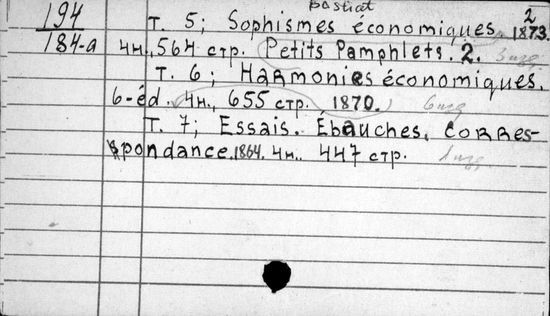 Bastiat
194 т. 5; Sophismes économiques. 2 1873.
184-а 4н., 564 стр. Petits Pamphlets. 2. 5 изд.
т. 6; Harmonies économiques.
6-éd. 4н., 655 стр. 1870. 6 изд
т. 7; Essais. Ebauches. Corres-
pondance. 1864. 4н.. 447 стр.